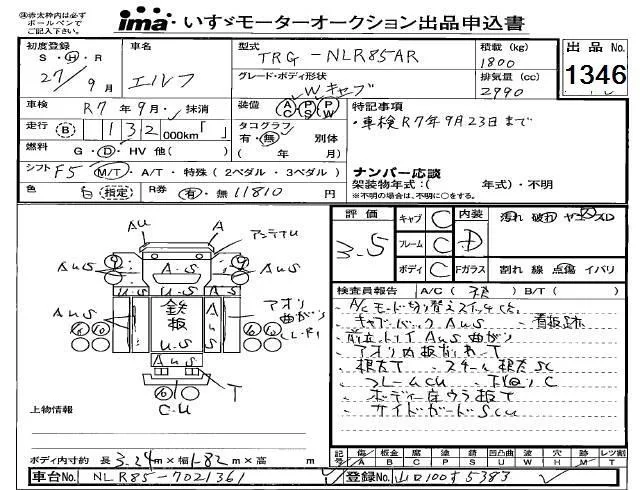 ※赤太枠内は必ず
ボールペンで
ご記入下さい。
ima いすゞモーターオークション出品申込書
初度登録
S・H・R
27年9月
車名
エルフ
型式
TRG-NLR85AR
積載 (kg)
1800
出品 No.
1346
グレード・ボディ形状
Wキャブ
排気量 (cc)
2990
車検 R7年9月・抹消
装備 AC PS PW
特記事項
・車検R7年9月23日まで
走行 (B) 132000km「 」
タコグラフ
有・無 別体
( 年 月)
燃料 G・D・HV 他( )
シフト F5 M/T・A/T・特殊(2ペダル・3ペダル)
ナンバー応談
架装物年式:( 年式)・不明
※不明の場合は、不明に○をする。
色 白 (指定) R券 (有)・無 11810円
評価 3.5
キャブ C
フレーム C
ボディ C
内装 D
汚れ 破れ ヤニ スレ
Fガラス 割れ 線 点傷 イバリ
AU A アンテナU
AuS A・S AuS
U・S U・S
AuS 鉄板 U・S AuS アオリ曲がり
AuS
T
C・U
検査員報告 A/C ( ) B/T ( )
A/Cモード切り替えスイッチ
キャブバック AuS 看板跡
AuS 曲がり
アオリ内板 T
根太T スチール根太SC
フレームCU 下回りC
ボディー床ウラ板T
サイドガードSCU
上物情報
ボディ内寸約 長3.24m×幅1.82m×高 m
記号 傷/A 板金/B 腐/C 塗/P 錆/S 凹凸曲/U 波/W 穴/H 欠/M 切/T レツ割
車台No. NLR85-7021361
登録No. 山口100す5383